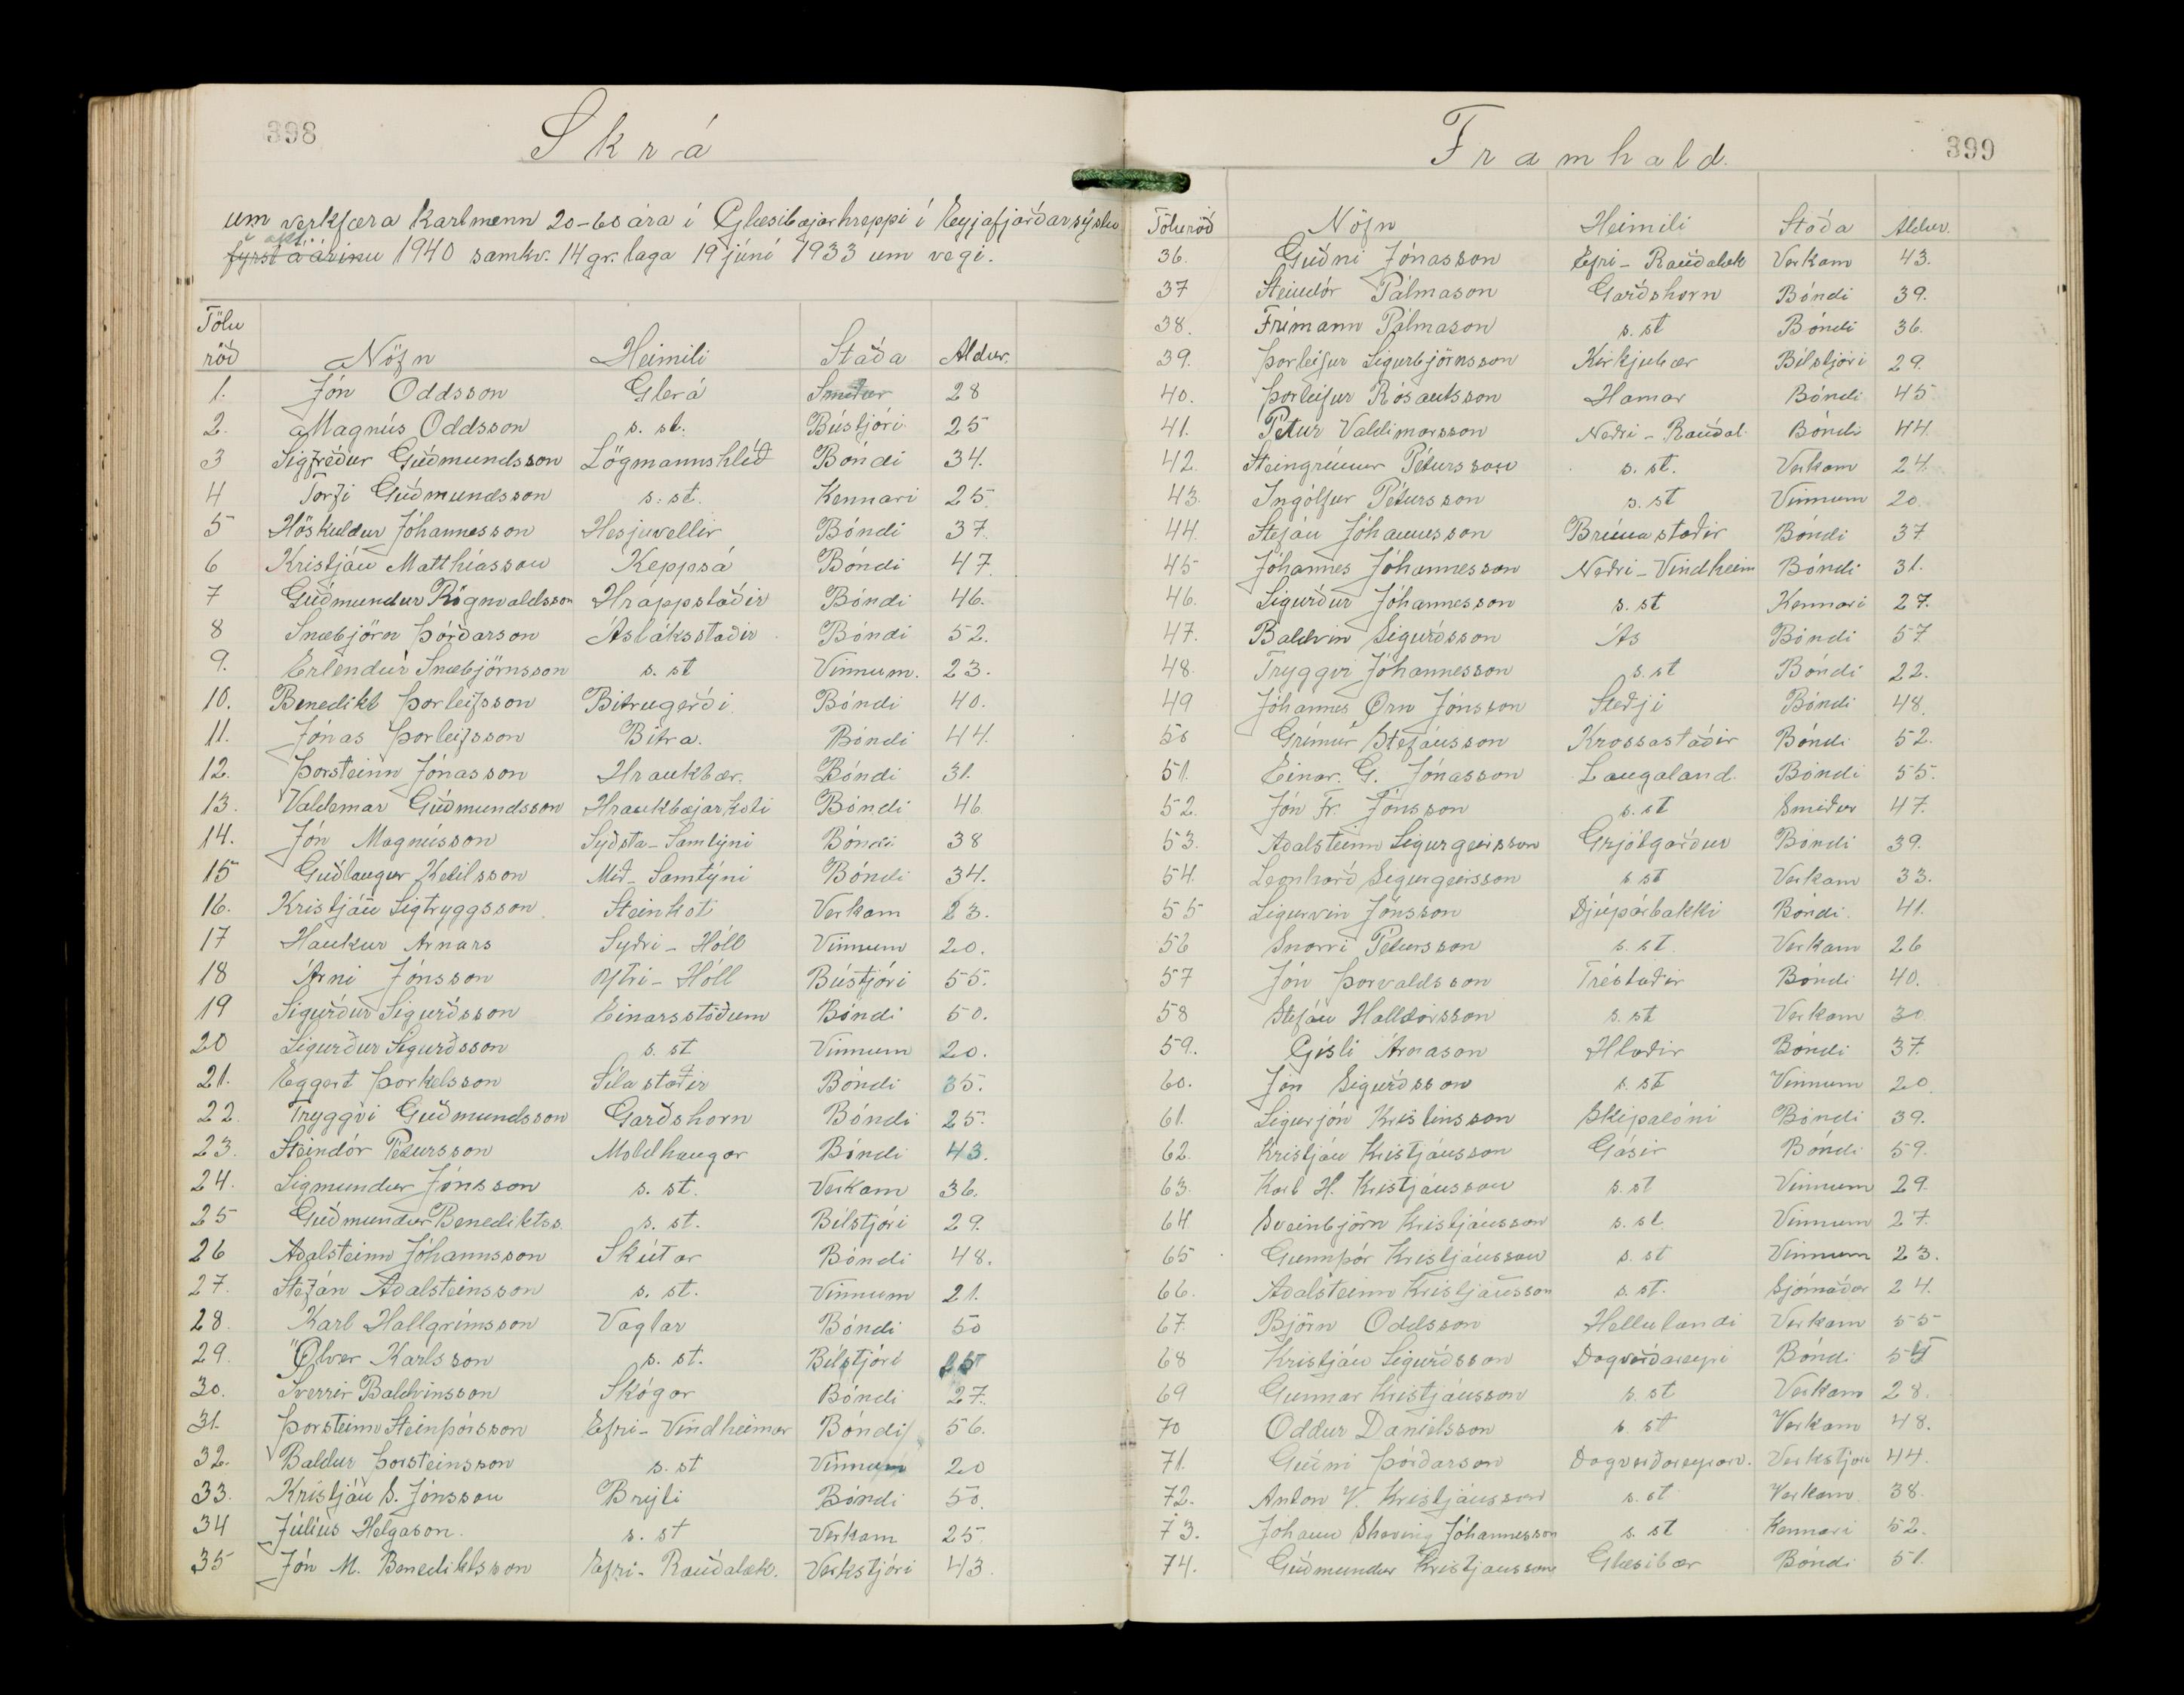 398
Skrá
um verkfæra karlmenn 20-60 ára í Glæsibæjarhreppi í Eyjafjarðarsýslu
fyrst á árinu 1940 samkv. 14 gr. laga 19 júní 1933 um vegi.
Tölu röð Nöfn Heimili Staða Aldur.
1. Jón Oddsson Glerá Smiður 28
2. Magnús Oddsson s. st. Bústjóri 25
3 Sigfreður Guðmundsson Lögmannshlíð Bóndi 34.
4 Torfi Guðmundsson s. st. Kennari 25
5 Höskuldur Jóhannesson Hesjuvellir Bóndi 37.
6 Kristján Matthíasson Keppsá Bóndi 47.
7 Guðmundur Rögnvaldsson Hrappstaðir Bóndi 46.
8 Snæbjörn Þórðarson Ásláksstaðir Bóndi 52.
9. Erlendur Snæbjörnsson s. st Vinnum. 23.
10. Benedikt Þorleifsson Bitrugerði Bóndi 40.
11. Jónas Þorleifsson Bitra. Bóndi 44.
12. Þorsteinn Jónasson Hraukbær. Bóndi 31.
13. Valdemar Guðmundsson Hraukbæjarkoti Bóndi 46
14. Jón Magnússon Syðsta-Samtýni Bóndi 38
15 Guðlaugur Ketilsson Mið-Samtýni Bóndi 34.
16. Kristján Sigtryggsson Steinkot Verkam 23.
17 Haukur Arnars Syðri-Hóll Vinnum 20.
18 Árni Jónsson Ytri-Hóll Bústjóri 55.
19 Sigurður Sigurðsson Einarsstöðum Bóndi 50.
20 Sigurður Sigurðsson s. st Vinnum 20.
21. Eggert Þorkelsson Silastaðir Bóndi 35.
22 Tryggvi Guðmundsson Garðshorn Bóndi 25.
23. Steindór Pétursson Moldhaugar Bóndi 43.
24. Sigmundur Jónsson s. st. Verkam 36.
25 Guðmundur Benediktss. s. st. Bílstjóri 29.
26 Aðalsteinn Jóhannsson Skútar Bóndi 48.
27. Stefán Aðalsteinsson s. st. Vinnum 21.
28. Karl Hallgrímsson Vaglar Bóndi 50
29. Ölver Karlsson s. st. Bílstjóri 25
30. Sverrir Baldvinsson Skógar Bóndi 27.
31. Þorsteinn Steinþórsson Efri-Vindheimar Bóndi 56.
32. Baldur Þorsteinsson s. st Vinnum 20
33. Kristján S. Jónsson Brýti Bóndi 50.
34 Júlíus Helgason. s. st Verkam 25.
35 Jón M. Benediktsson Efri-Rauðalæk. Verkstjóri 43.
Framhald.
399
Töluröð Nöfn Heimili Staða Aldur.
36. Guðni Jónasson Efri-Rauðalæk Verkam 43.
37 Steindór Pálmason Garðshorn Bóndi 39.
38. Frímann Pálmason s. st Bóndi 36.
39. Þorleifur Sigurbjörnsson Kirkjubær Bílstjóri 29.
40. Þorleifur Rósantsson Hamar Bóndi 45
41. Pétur Valdimarsson Neðri-Rauðal. Bóndi 44.
42. Steingrímur Pétursson s. st. Verkam 24.
43. Ingólfur Pétursson s. st Vinnum 20.
44. Stefán Jóhannesson Brimastaðir Bóndi 37
45 Jóhannes Jóhannesson Neðri-Vindheim Bóndi 31.
46. Sigurður Jóhannesson s. st Kennari 27.
47. Baldvin Sigurðsson Ás Bóndi 57
48. Tryggvi Jóhannesson s. st Bóndi 22.
49 Jóhannes Örn Jónsson Steðji Bóndi 48.
50 Grímur Stefánsson Krossastaðir Bóndi 52.
51. Einar. G. Jónasson Laugaland. Bóndi 55.
52. Jón Fr. Jónsson s. st Smiður 47.
53. Aðalsteinn Sigurgeirsson Grjótgarður Bóndi 39.
54. Leonharð Sigurgeirsson s. st Verkam 33.
55 Sigurvin Jónsson Djúpárbakki Bóndi. 41.
56 Snorri Pétursson s. st. Verkam 26
57 Jón Þorvaldsson Tréstaðir Bóndi 40.
58 Stefán Halldórsson s. st Verkam 30.
59. Gísli Árnason Hlaðir Bóndi 37.
60. Jón Sigurðsson s. st Vinnum 20.
61. Sigurjón Kristinsson Skipalóni Bóndi 39.
62. Kristján Kristjánsson Gásir Bóndi 59.
63. Karl H. Kristjánsson s. st Vinnum 29.
64. Sveinbjörn Kristjánsson s. st. Vinnum 27.
65 Gunnþór Kristjánsson s. st Vinnum 23.
66. Aðalsteinn Kristjánsson s. st. Sjómaður 24.
67. Björn Oddsson Hellulandi Verkam 55
68 Kristján Sigurðsson Dagverðareyri Bóndi
69 Gunnar Kristjánsson s. st Verkam 28.
70 Oddur Daníelsson s. st Verkam 48.
71. Guðni Þórðarson Dagverðareyrarv. Verkstjóri 44.
72. Anton V. Kristjánsson s. st Verkam. 38.
73. Jóhann Skaving Jóhannesson s. st Kennari 52.
74. Guðmundur Kristjánsson Glæsibær Bóndi 51.